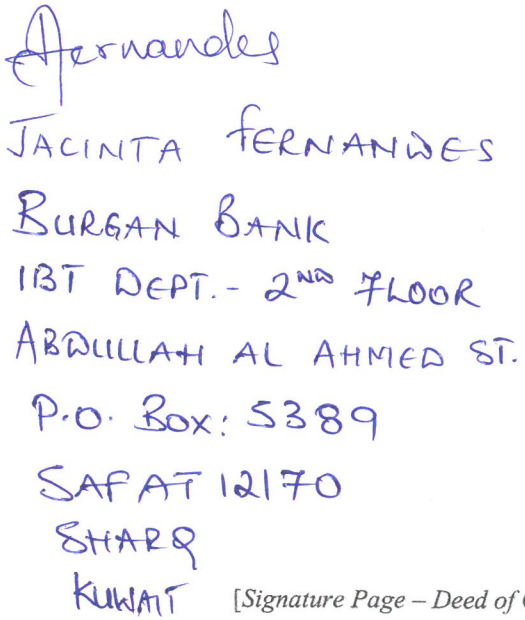 Jfernandes
JACINTA FERNANDES
BURGAN BANK
IBT DEPT. - 2ND FLOOR
ABDULLAH AL AHMED ST.
P.O. BOX: 5389
SAFAT 12170
SHARQ
KUWAIT [Signature Page – Deed of